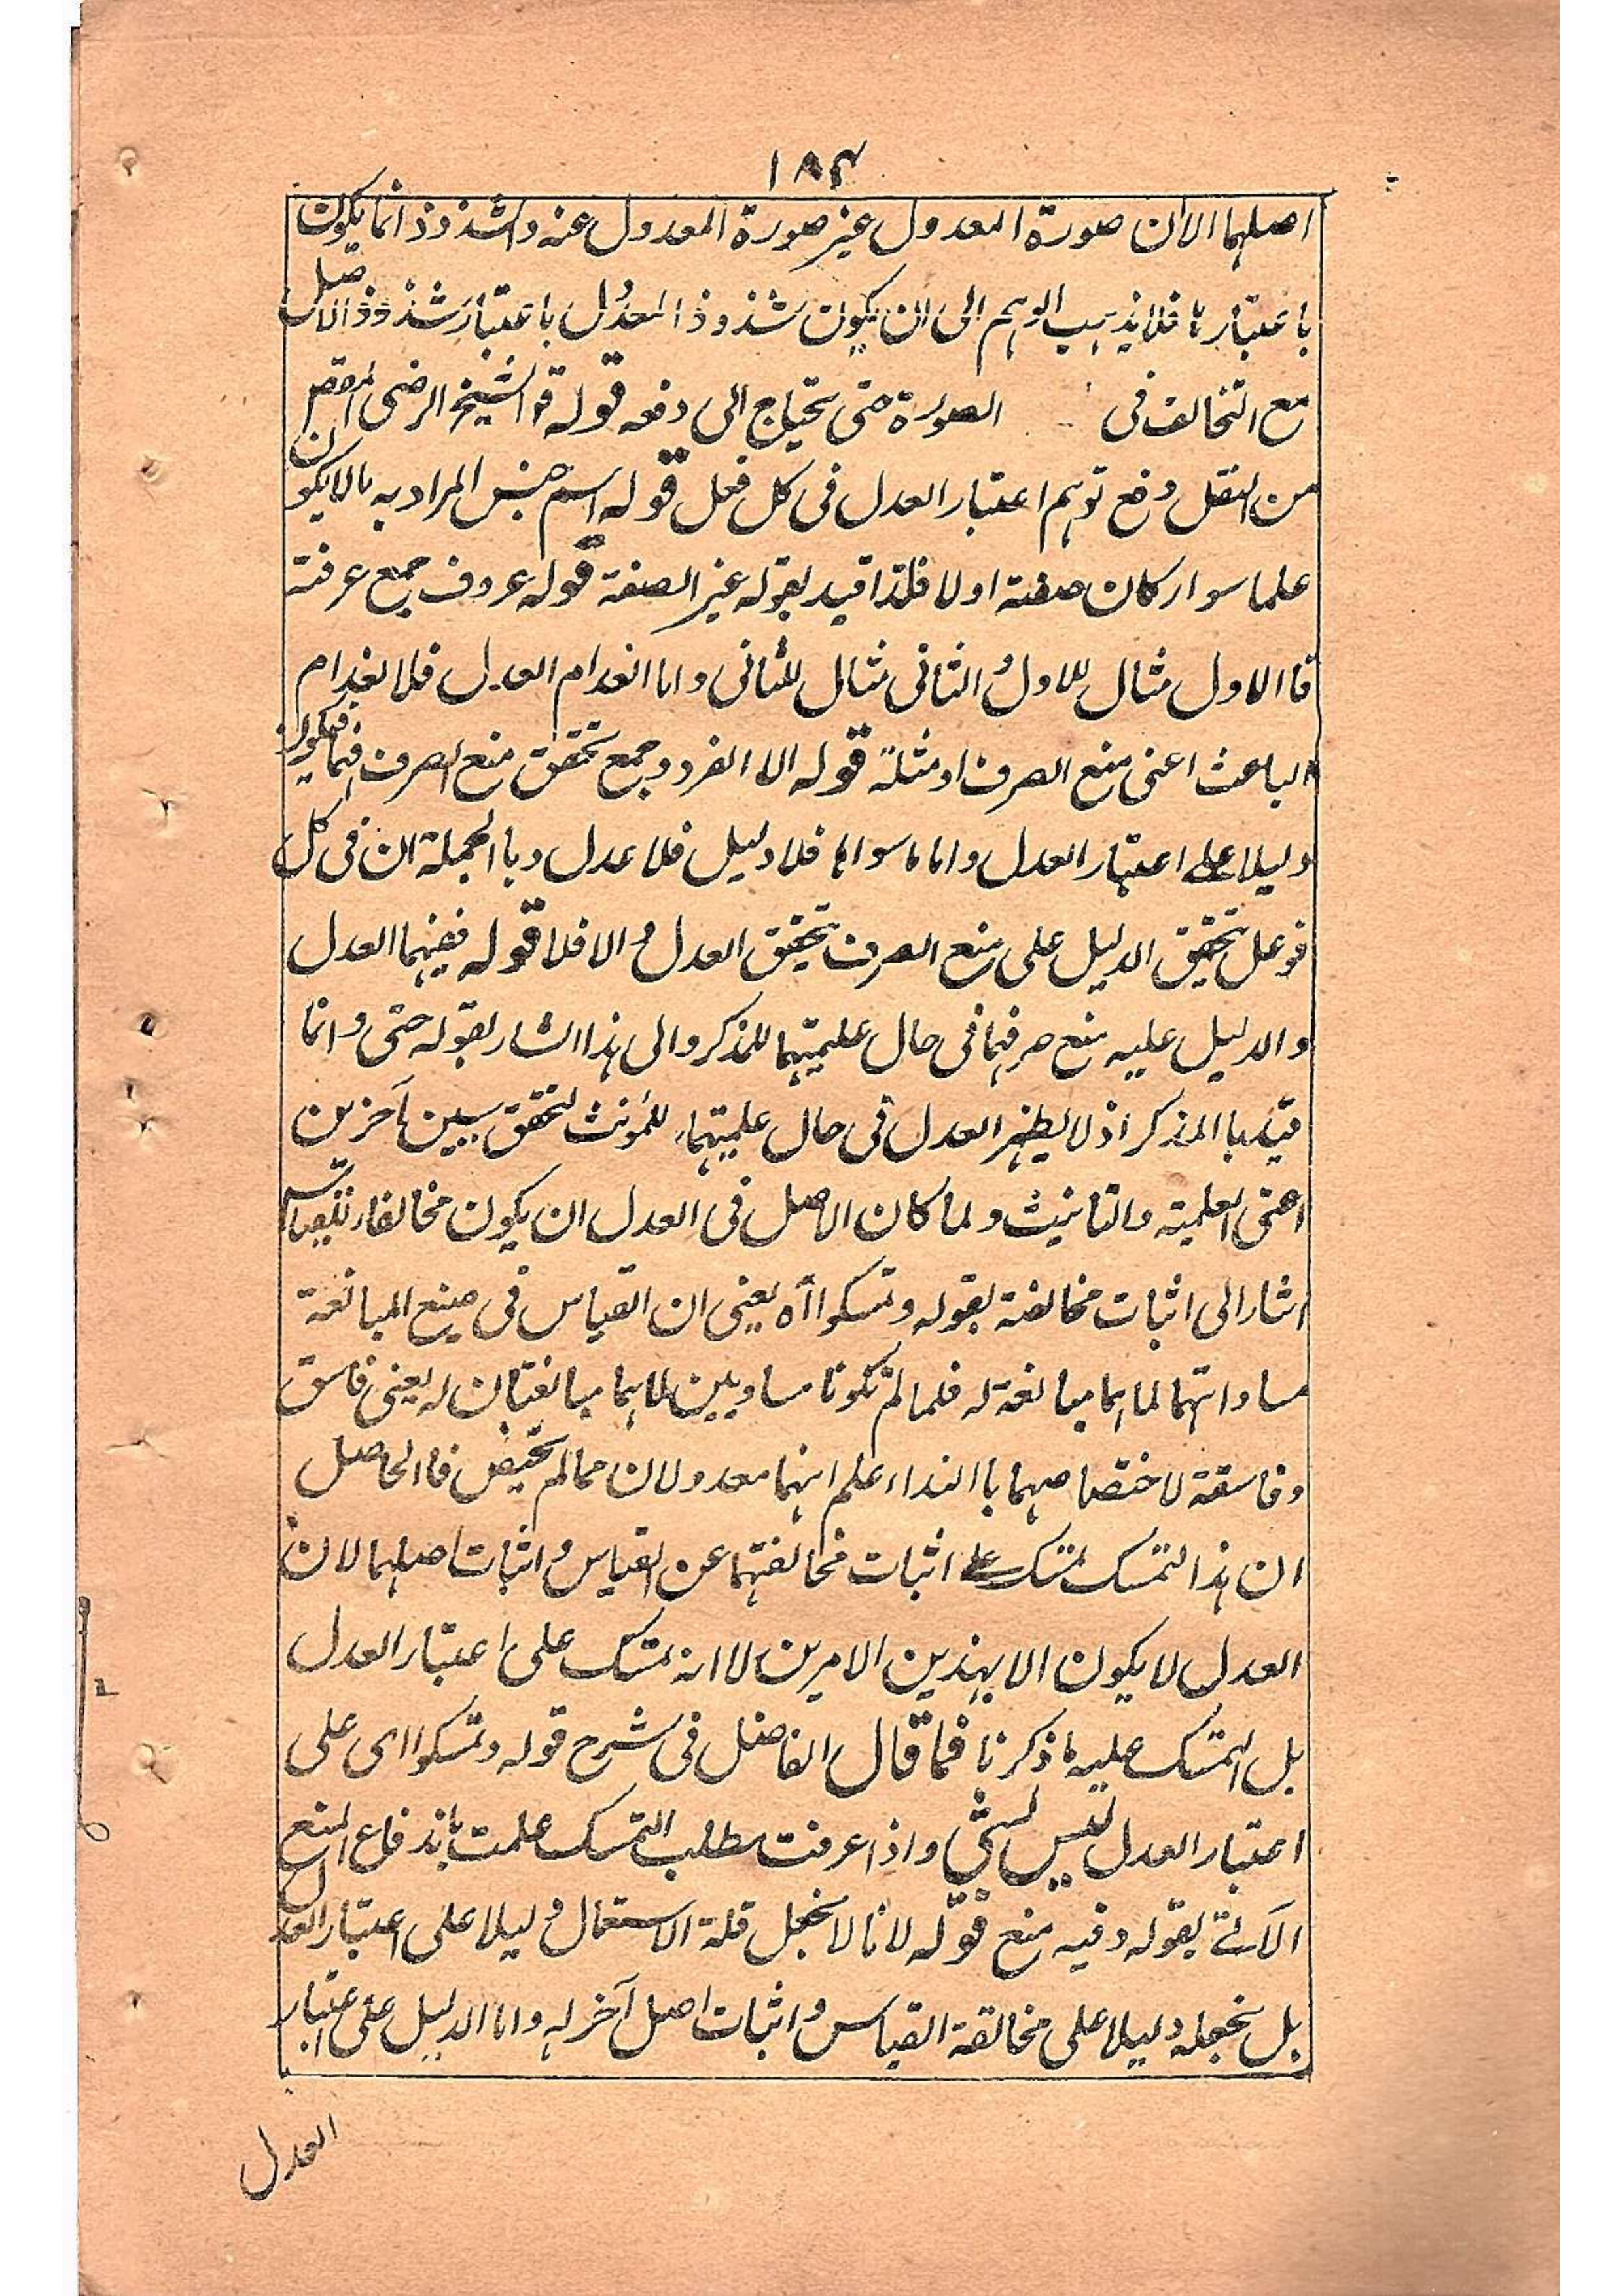 ١٨٤
اصلهما الان صورة المعدول غير صورة المعدول عنه والشذوذ انما يكون
باعتبارها فلا يذهب الوهم الى ان يكون شذوذ المعدول باعتبار شذوذ الاصل
مع التخالف فى الصورة حتى يحتاج الى دفعه قوله قو الشيخ الرضى المقص
من النقل دفع توهم اعتبار العدل فى كل فعل قوله اسم جنس المراد به مالا يكون
علما سوار كان صفتة اولا فلذا قيد بقوله غير الصفة قوله عروف جمع عرفتة
فا الاول مثال للاول و الثانى مثال للثانى واما انعدام العدل فلانعدام
الباعث اعنى منع الصرف او مثله قوله الا الفرد وجمع تحقق منع الصرف فيها فيكون
دليلا على اعتبار العدل واما ما سواها فلا دليل فلا عدل وبا الجملة ان فى كل
فوعل تحقيق الدليل على منع الصرف تحقيق العدل و الا فلا قوله ففيهما العدل
و الدليل عليه منع صرفهما فى حال علميتهما للمذكر والى هذا اشار بقوله حتى وانما
قيد با المذكر اذ لا يظهر العدل فى حال علميتهما للمؤنث لتحقق سببين آخرين
اعنى العلمية والتانيث ولما كان الاصل فى العدل ان يكون مخالفا للقياس
اشار الى اثبات مخالفته بقوله وتمسكوا آه يعنى ان القياس فى صيغ المبالغة
مساواتهما لما هما مبالغة له فلما لم تكونا مساويين لما هما مبالغتان له يعنى فاسق
وفاسقة لاختصاصهما با النداء علم انهما معدولان عما لم يختص فا الحاصل
ان هذا التمسك تمسك على اثبات مخالفتهما عن القياس و اثبات اصلهما لان
العدل لا يكون الا بهذين الامرين لا انه تمسك على اعتبار العدل
بل التمسك عليه ما ذكرنا فما قال الفاضل فى شرح قوله وتمسكوا اى على
اعتبار العدل ليس بشئ واذا عرفت مطلب التمسك علمت باندفاع المنع
الآتے بقوله وفيه منع قوله لانا لا نجعل قلة الاستعمال دليلا على اعتبار العدل
بل نجعله دليلا على مخالفة القياس و اثبات اصل آخر له واما الدليل على اعتبار
العدل